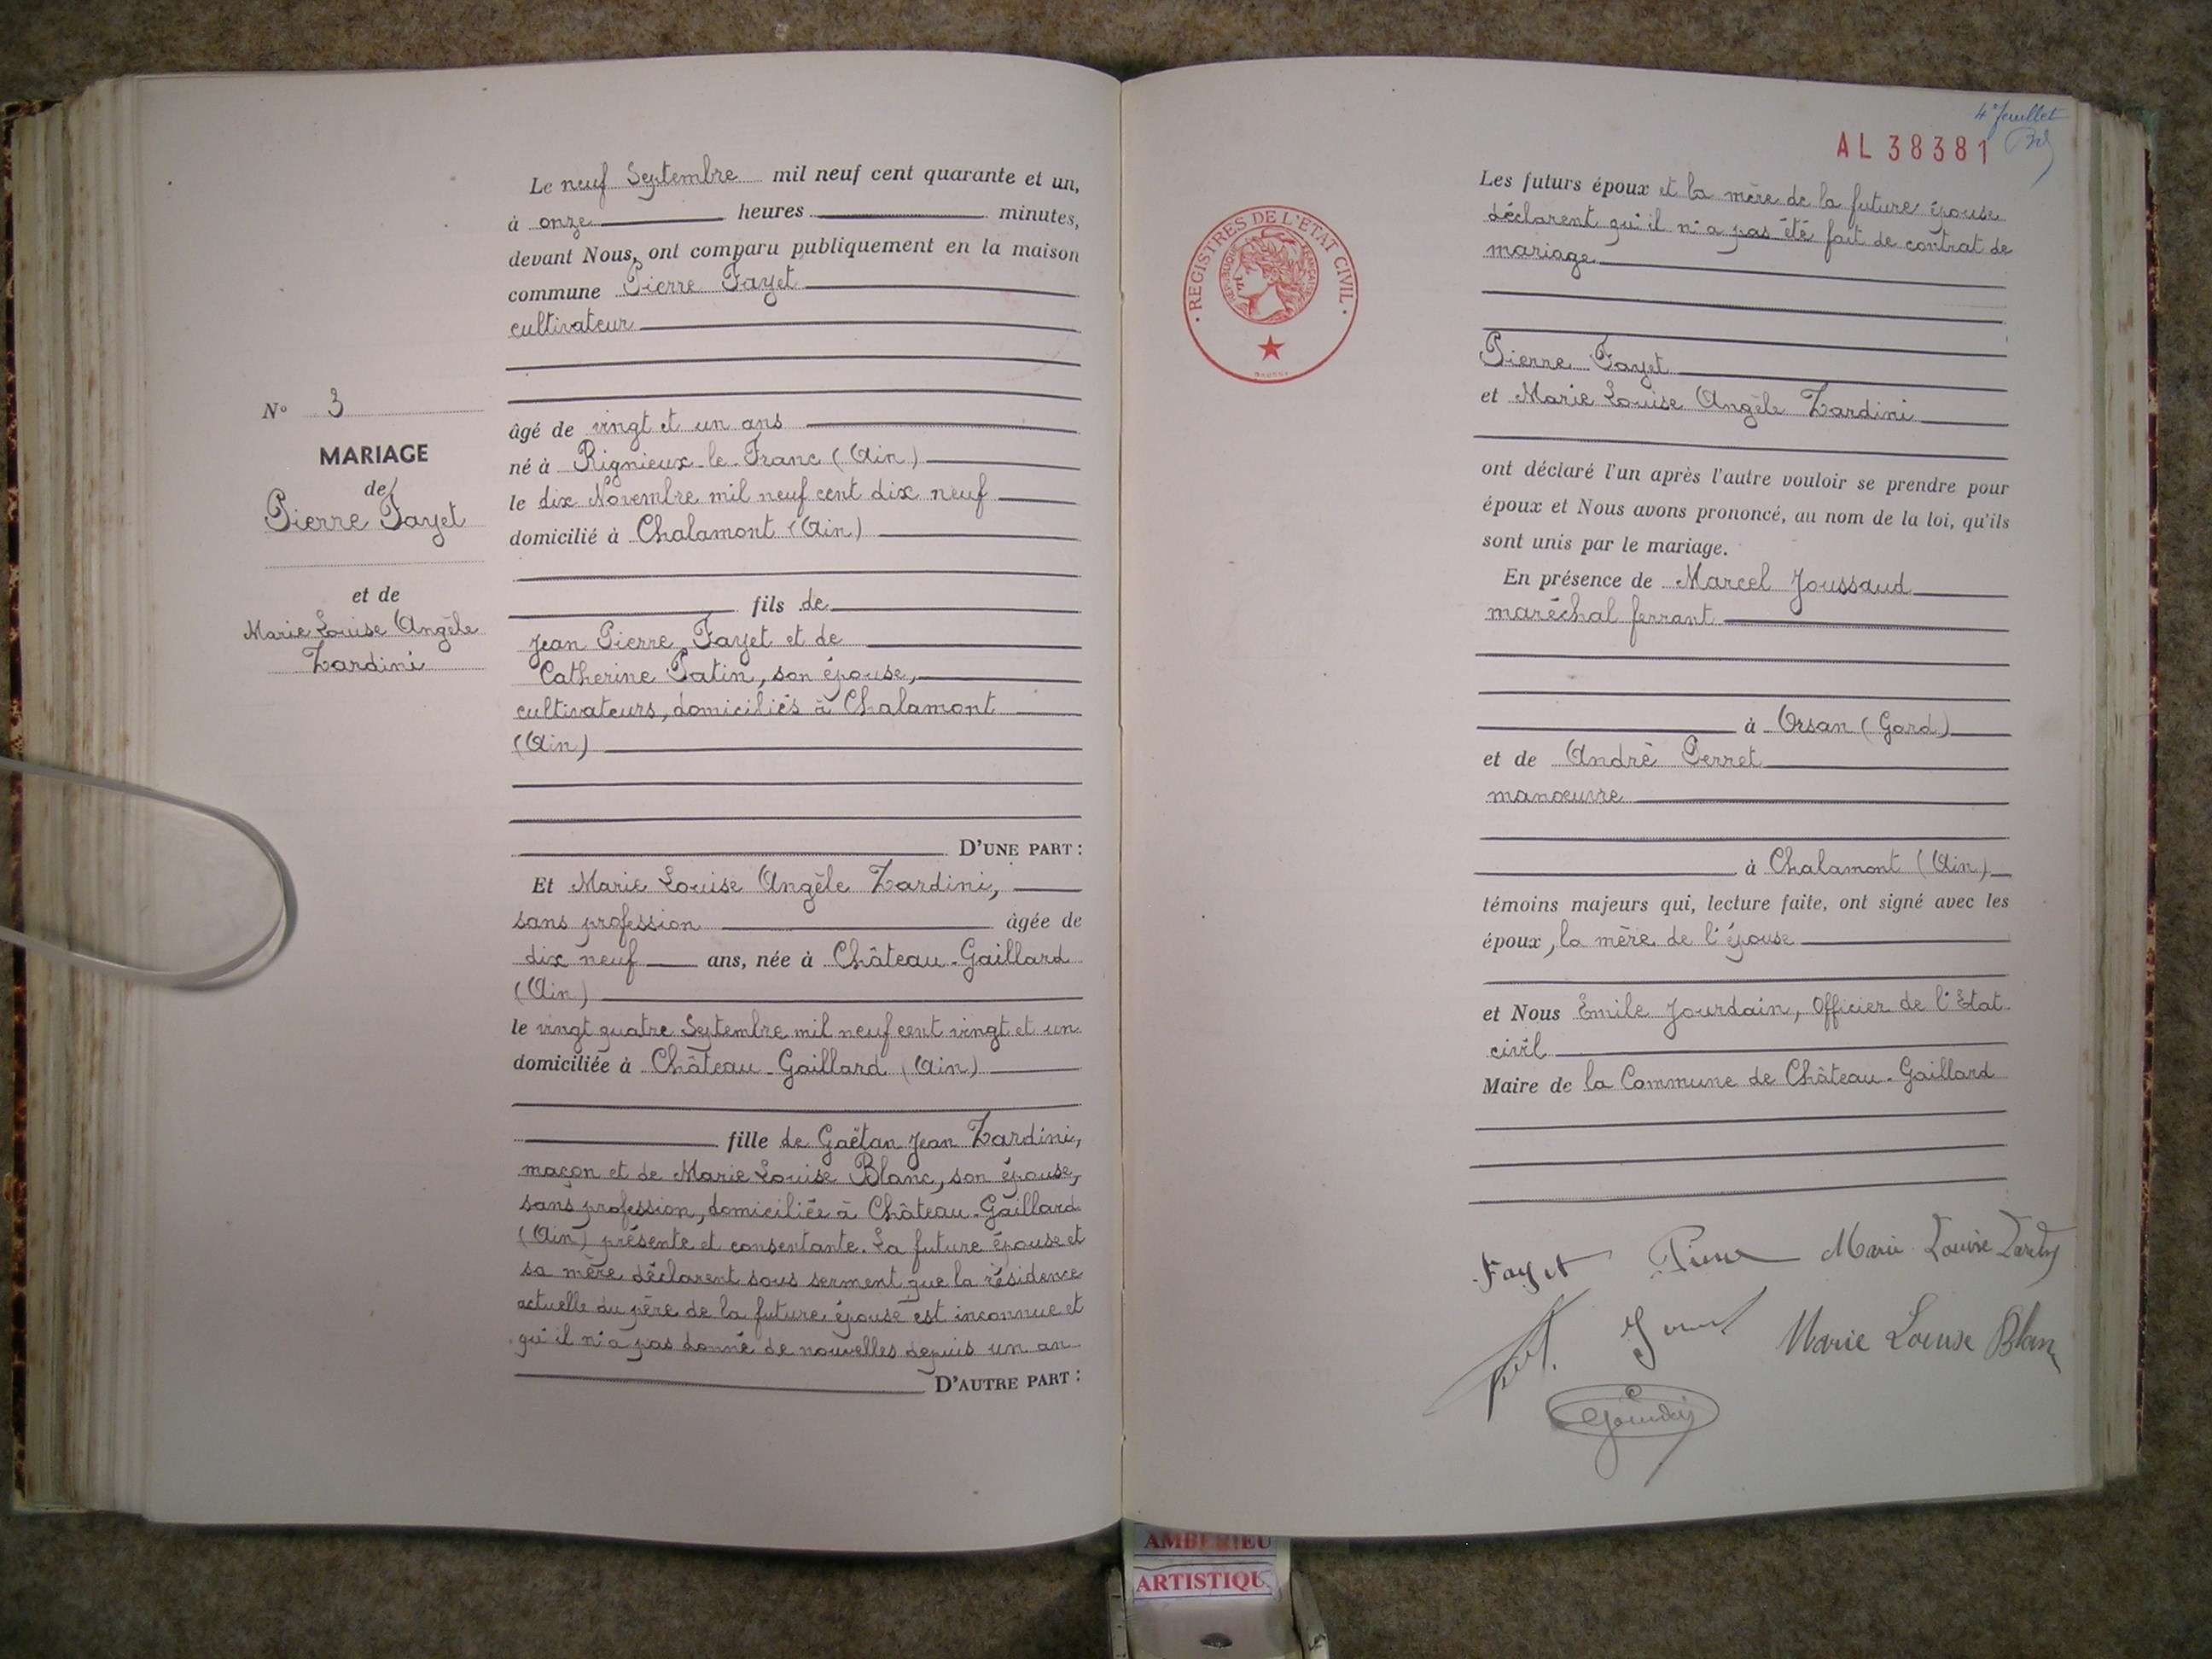 N° 3
MARIAGE
de
Pierre Fayet
et de
Marie Louise Angèle
Zardini
Le neuf Septembre mil neuf cent quarante et un,
à onze heures minutes,
devant Nous, ont comparu publiquement en la maison
commune Pierre Fayet
cultivateur
âgé de vingt et un ans
né à Rignieux-le-Franc (Ain)
le dix Novembre mil neuf cent dix neuf
domicilié à Chalamont (Ain)
fils de
Jean Pierre Fayet et de
Catherine Patin, son épouse,
cultivateurs, domiciliés à Chalamont
(Ain)
D'UNE PART :
Et Marie Louise Angèle Zardini,
sans profession âgée de
dix neuf ans, née à Château-Gaillard
(Ain)
le vingt quatre Septembre mil neuf cent vingt et un
domiciliée à Château-Gaillard (Ain)
fille de Gaëtan Jean Zardini,
maçon et de Marie Louise Blanc, son épouse,
sans profession, domiciliée à Château-Gaillard
(Ain) présente et consentante. La future épouse et
sa mère déclarent sous serment que la résidence
actuelle du père de la future épouse est inconnue et
qu'il n'a pas donné de nouvelles depuis un an
D'AUTRE PART :
4e feuillet
AL 38381
REGISTRES DE L'ETAT CIVIL
REPUBLIQUE FRANÇAISE
Les futurs époux et la mère de la future épouse
déclarent qu'il n'a pas été fait de contrat de
mariage
Pierre Fayet
et Marie Louise Angèle Zardini
ont déclaré l'un après l'autre vouloir se prendre pour
époux et Nous avons prononcé, au nom de la loi, qu'ils
sont unis par le mariage.
En présence de Marcel Joussaud
maréchal ferrant
à Orsan (Gard)
et de André Perret
manoeuvre
à Chalamont (Ain)
témoins majeurs qui, lecture faite, ont signé avec les
époux, la mère de l'épouse
et Nous Emile Jourdain, Officier de l'Etat
civil
Maire de la Commune de Château-Gaillard
Fayet Pierre Marie Louise
Marie Louise Blanc
AMBERIEU
ARTISTIQU